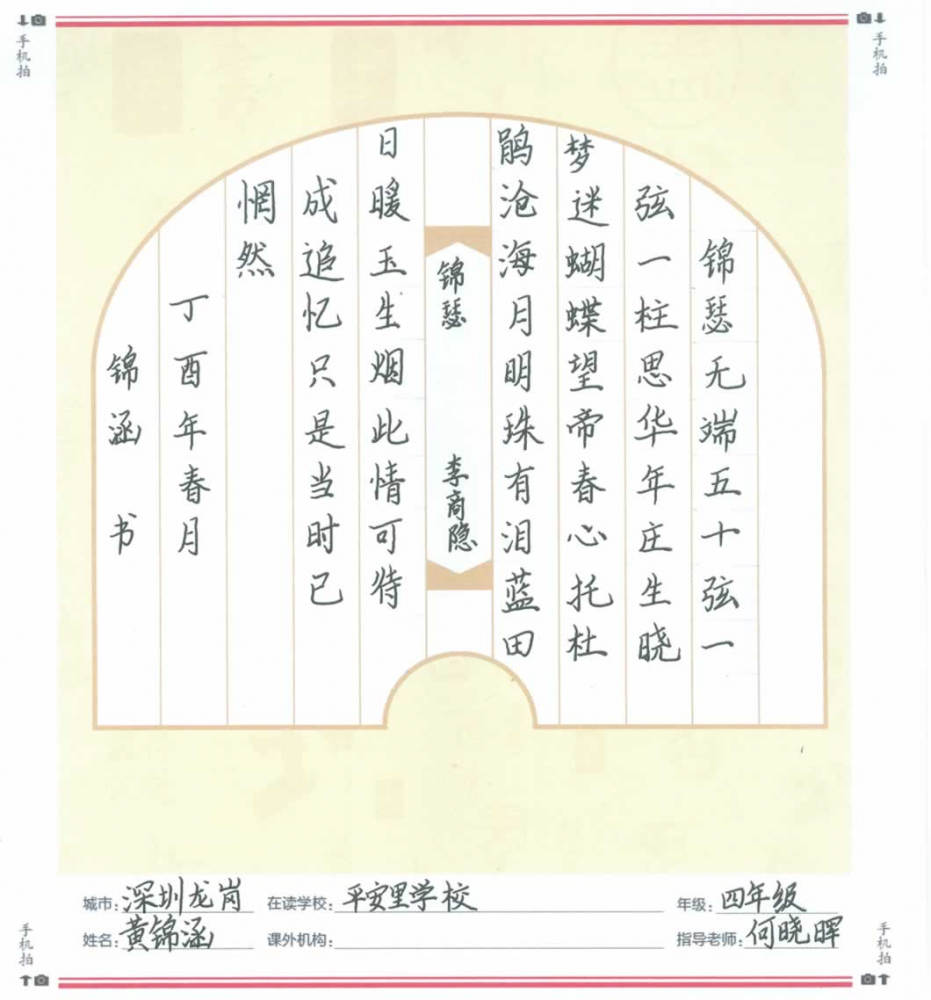 手机拍
手机拍
锦瑟无端五十弦一
弦一柱思华年庄生晓
梦迷蝴蝶望帝春心托杜
鹃沧海月明珠有泪蓝田
锦瑟 李商隐
日暖玉生烟此情可待
成追忆只是当时已
惘然
丁酉年春月
锦涵 书
城市: 深圳龙岗 在读学校: 平安里学校 年级: 四年级
姓名: 黄锦涵 课外机构: 指导老师: 何晓晖
手机拍
手机拍